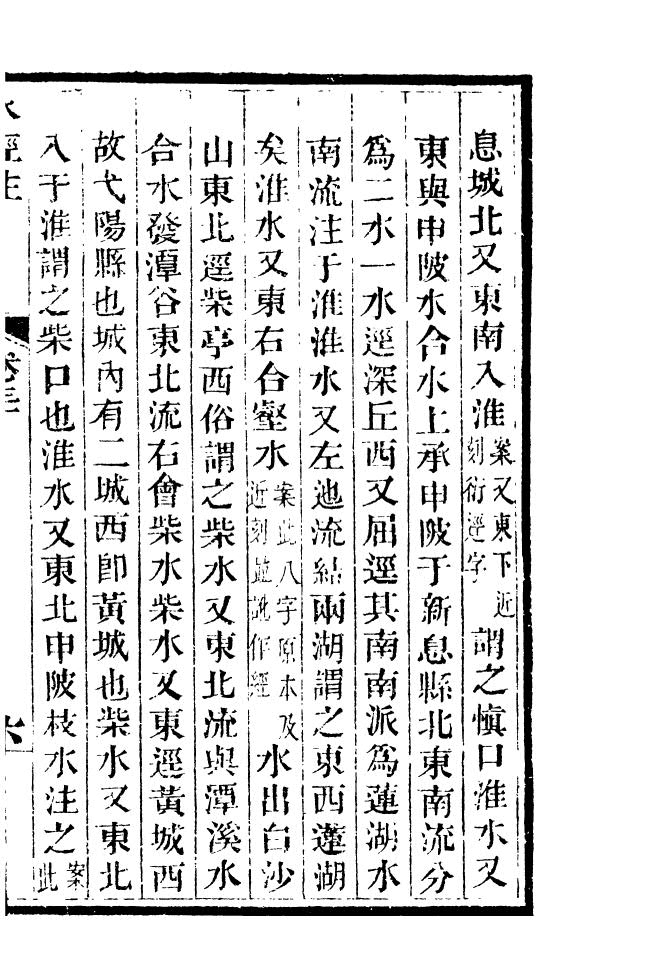 息城北又東南入淮案又東下近刻衍逕字謂之愼口淮水又
東與申陂水合水上承申陂于新息縣北東南流分
爲二水一水逕深丘西又屈逕其南南派爲蓮湖水
南流注于淮淮水又左迆流結兩湖謂之東西蓮湖
矣淮水又東右合壑水案此八字原本及近刻並訛作經水出白沙
山東北逕柴亭西俗謂之柴水又東北流與潭溪水
合水發潭谷東北流右會柴水柴水又東逕黃城西
故弋陽縣也城內有二城西卽黃城也柴水又東北
入于淮謂之柴口也淮水又東北申陂枝水注之案此
水經注
卷三
六